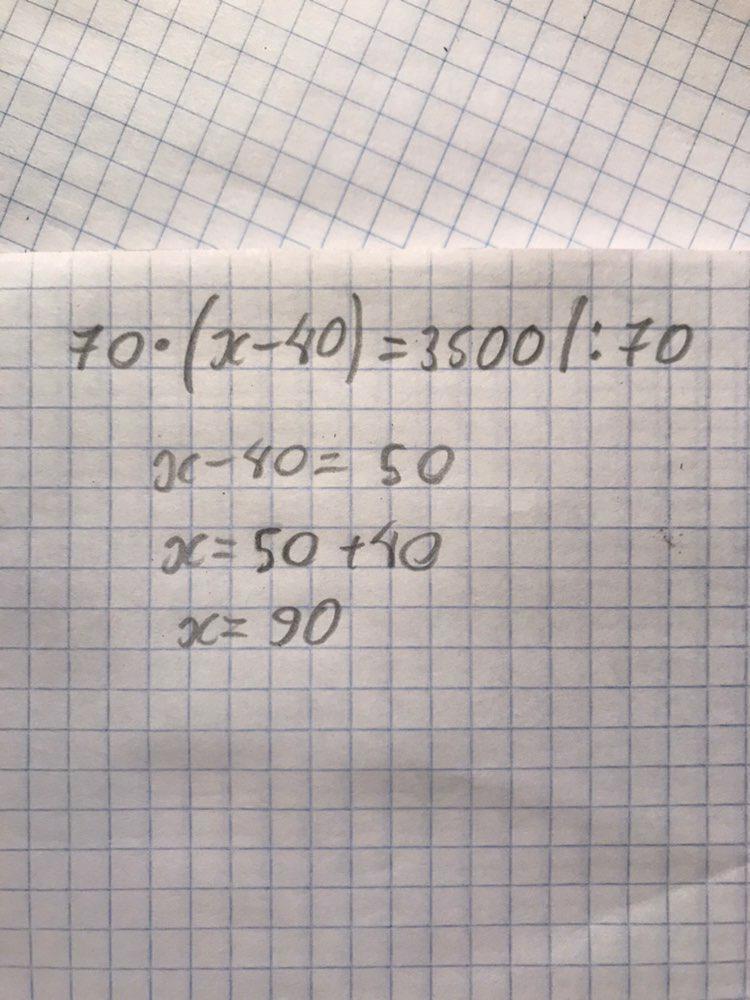 70·(x-40)=3500|:70
x-40=50
x=50+40
x=90